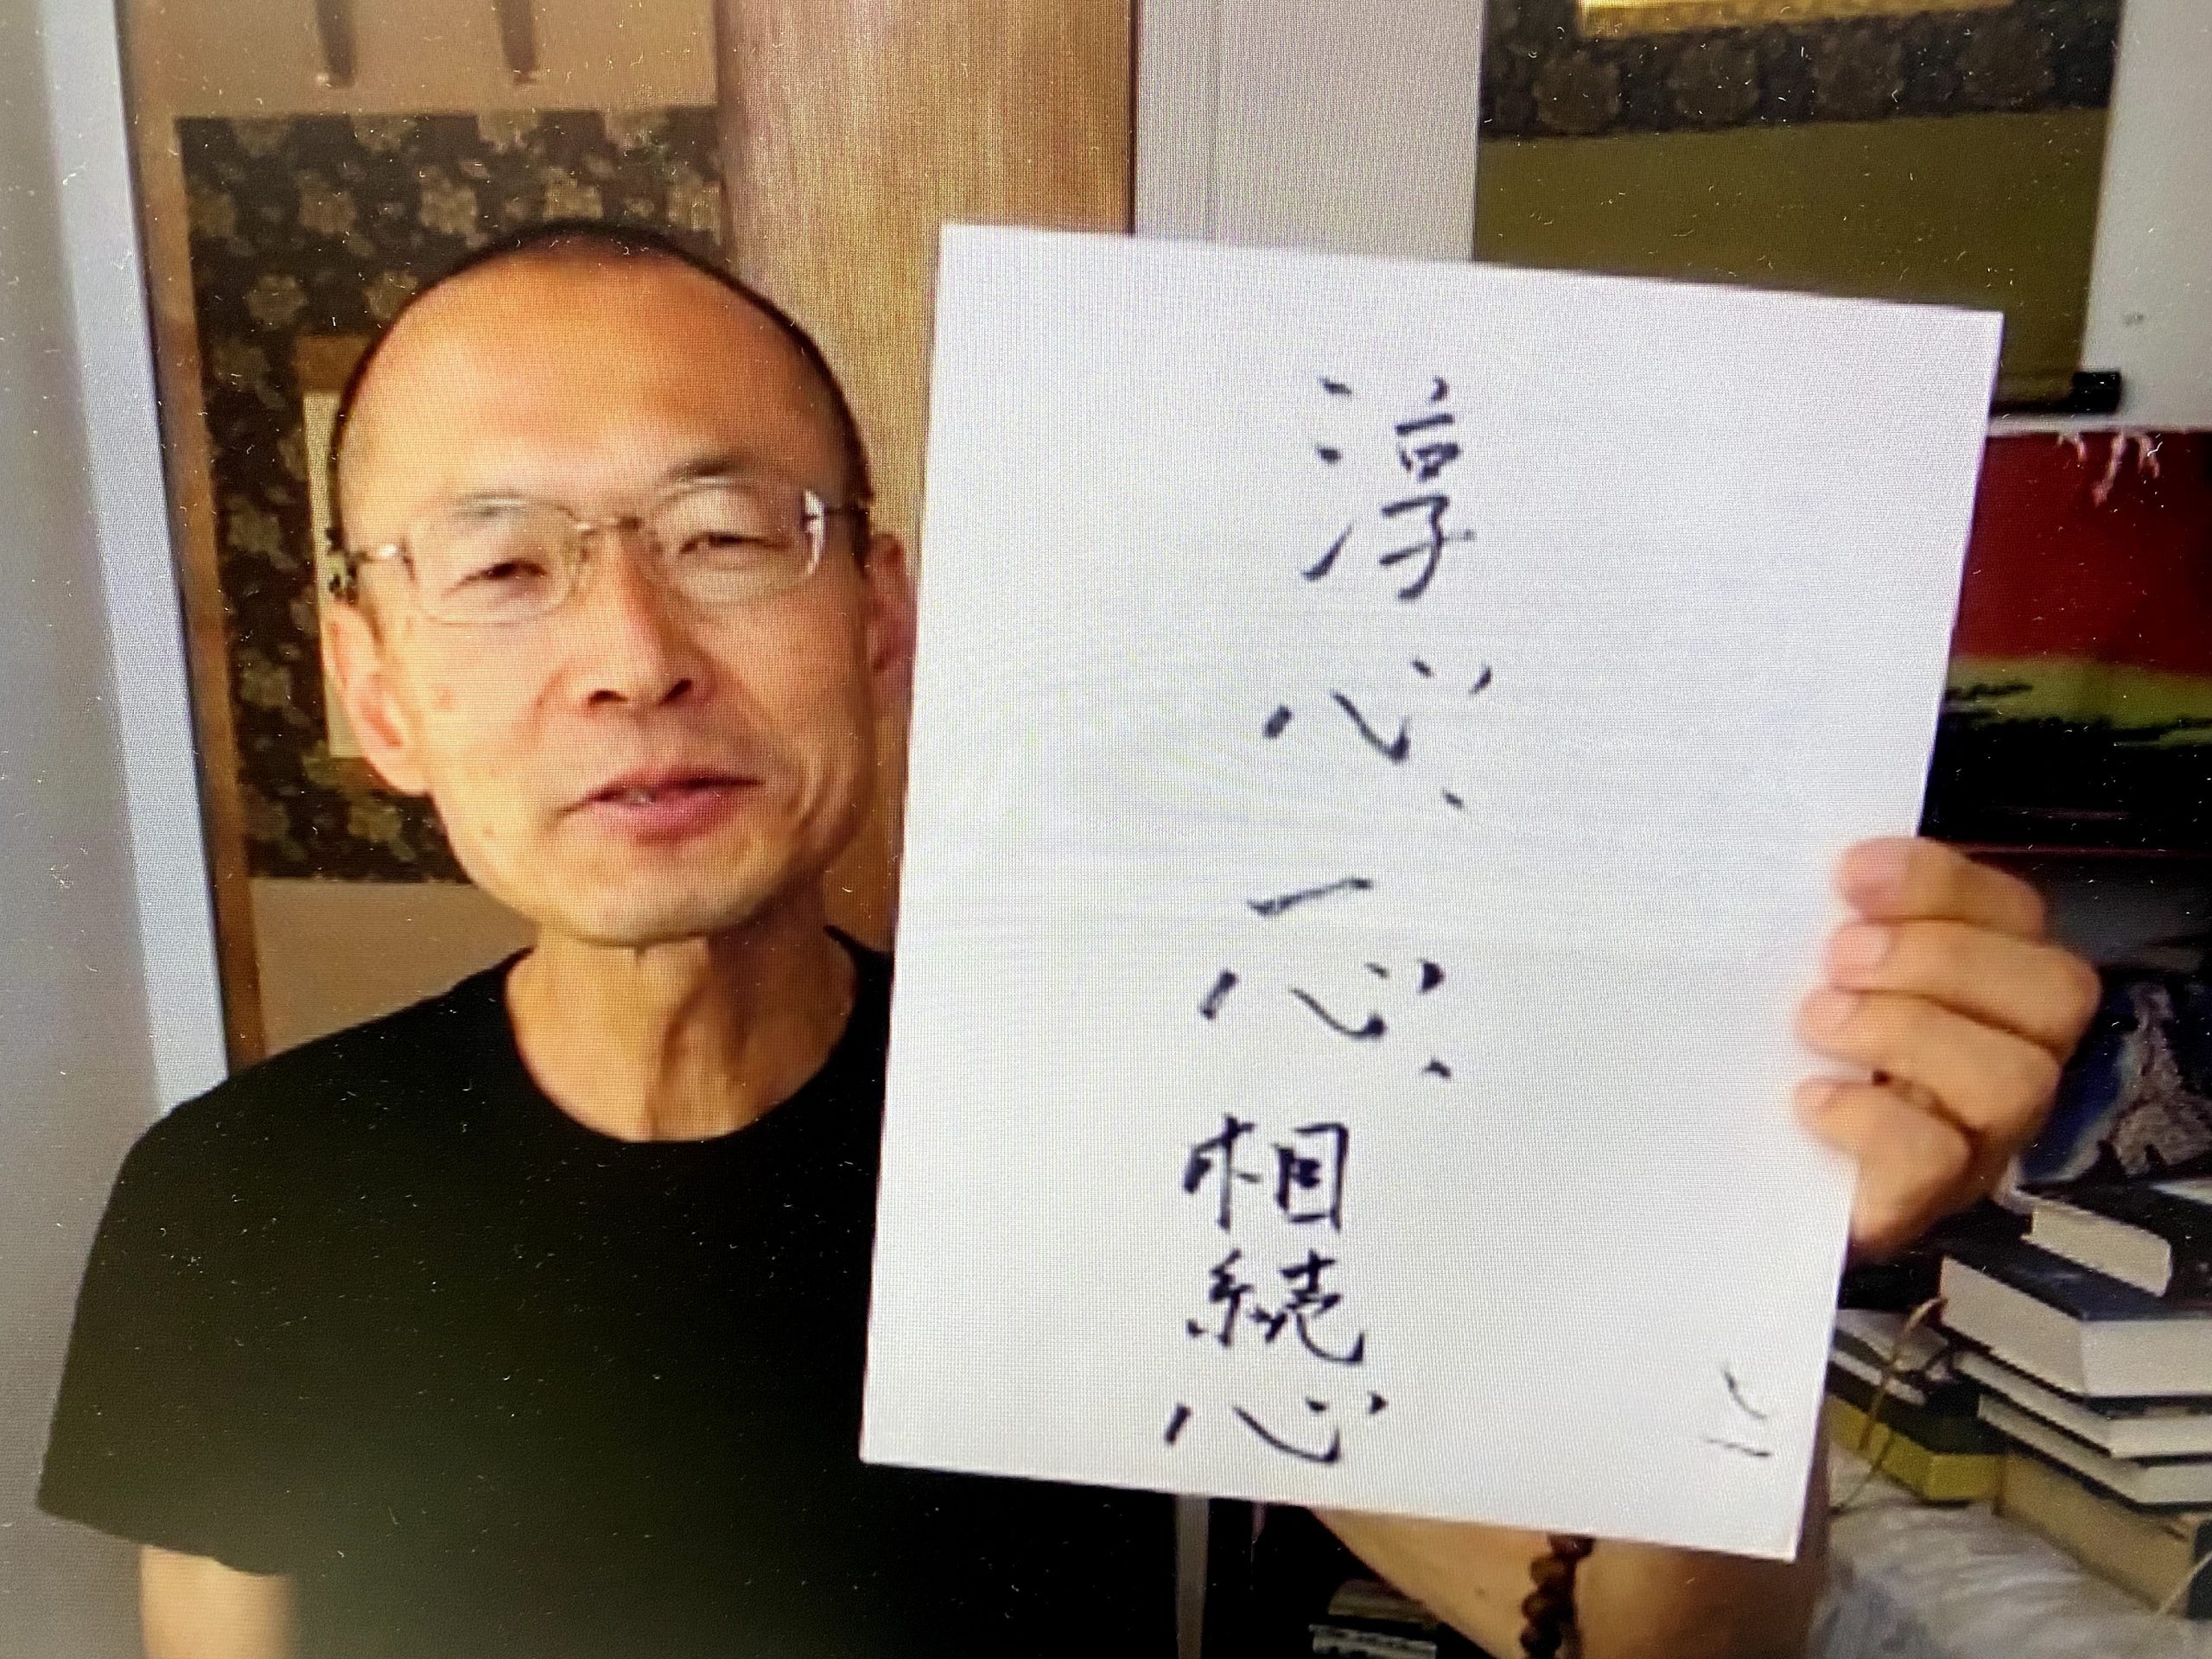 淳心、一心、相続心